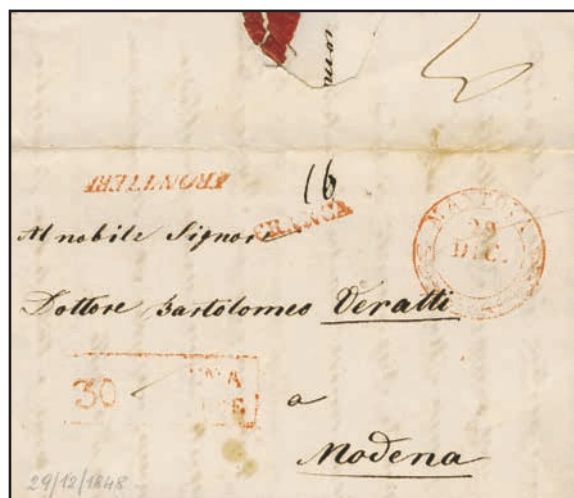 16
FRONTIER
FRANCA
MANTOVA
29
DIC.
Al nobile Signore
Dottore Bartolomeo Veratti
30
a
Modena
29/12/1848